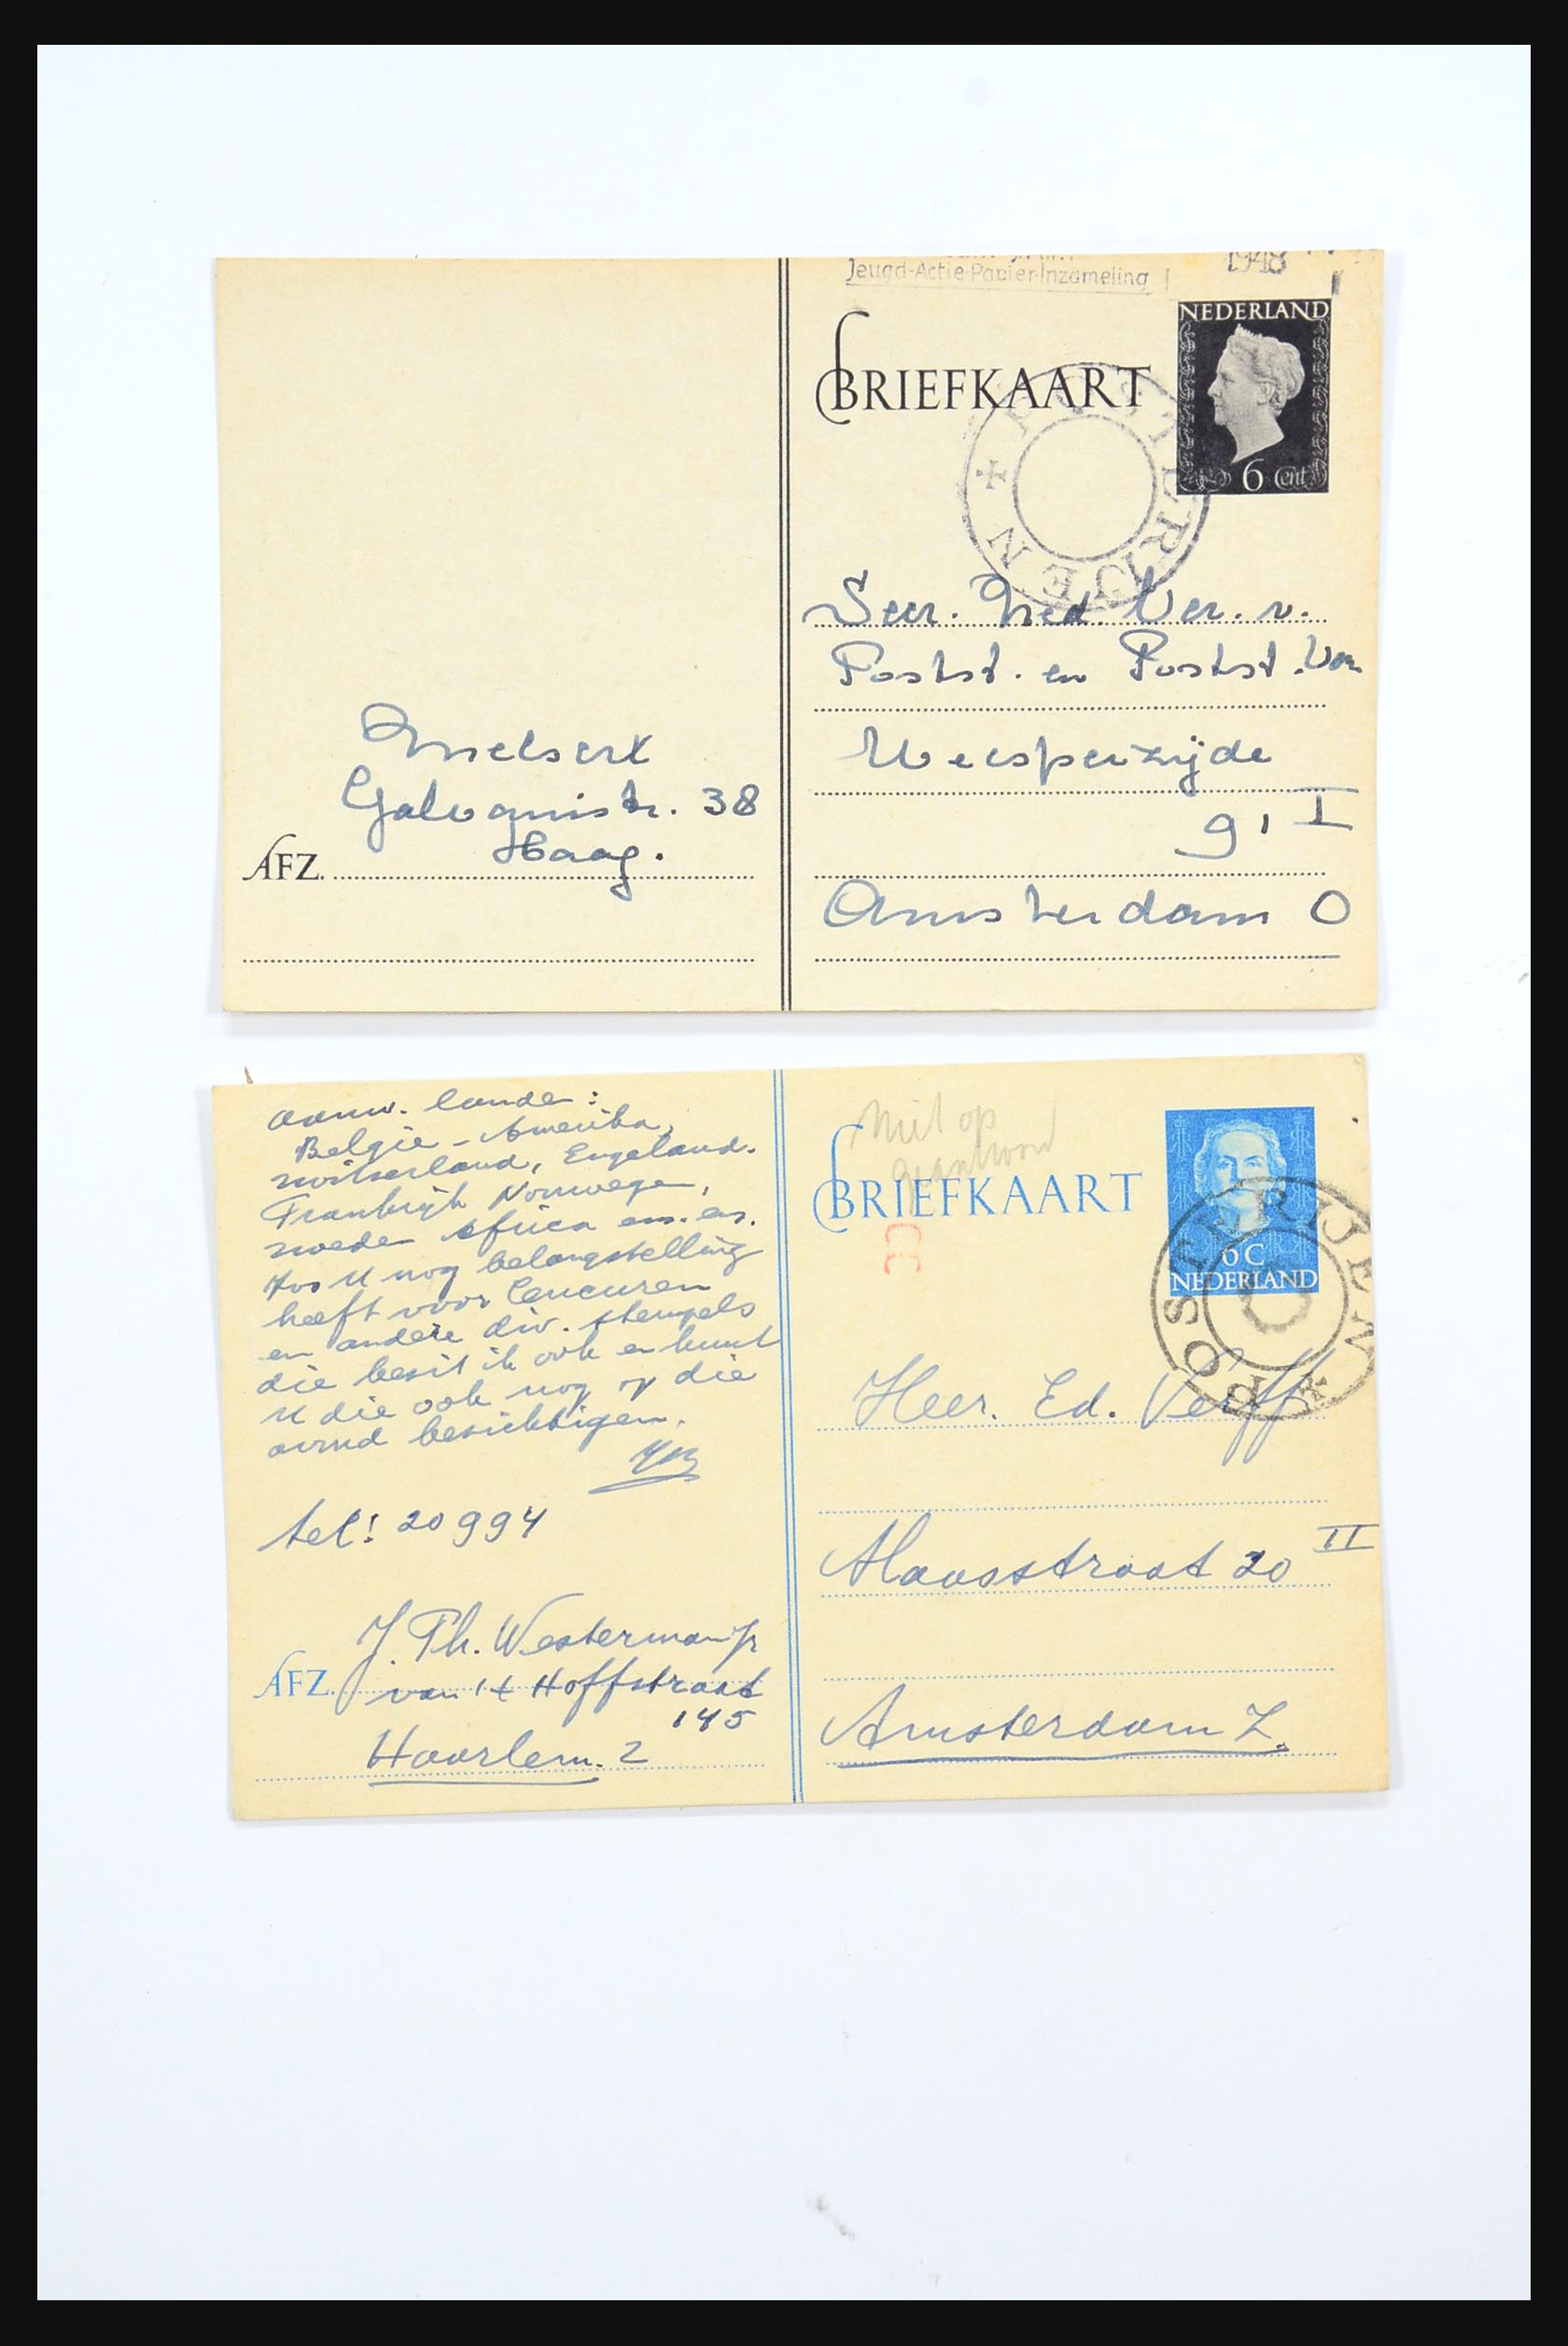 Jeugd-Actie-Papier-Inzameling
1948
NEDERLAND
6 Cent
BRIEFKAART
POSTERIJEN
Secr. Ned. Ver. v.
Postst. en Postst.
Weesperzijde
91 I
Amsterdam O
Galvanistr. 38
Haag.
AFZ.
aanw. landen:
Belgie - Amerika,
zwitserland, Engeland.
Frankrijk Noorwegen,
zweden Africa enz. enz.
U nog belangstelling
heeft voor Cencuren
en andere div. stempels
die bezit ik ook en kunt
U die ook nog op die
avond bezichtigen.
tel! 20994
J. Th. Westerman Jr
AFZ. van 't Hoffstraat
145
Haarlem. 2
Niet op
geantwoord
BRIEFKAART
6 C
NEDERLAND
POSTERIJEN
Heer. Ed. Verff
Maasstraat 20 II
Amsterdam Z.